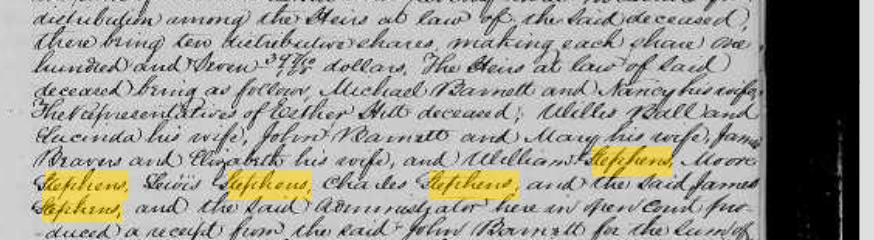 distribution among the Heirs at law of the said deceased,
there being ten distributive shares, making each share one
hundred and Seven dollars. The Heirs at law of said
deceased being as follows, Michael Barnett and Nancy his wife,
The representatives of Esther Hitt deceased; Willis Ball and
Lucinda his wife, John Barnett and Mary his wife, James
Beavers and Elizabeth his wife, and William Stephens, Moore
Stephens, Lewis Stephens, Charles Stephens, and the said James
Stephens, and the said Administrator here in open court pro-
-duced a receipt from the said John Barnett for the Sum of